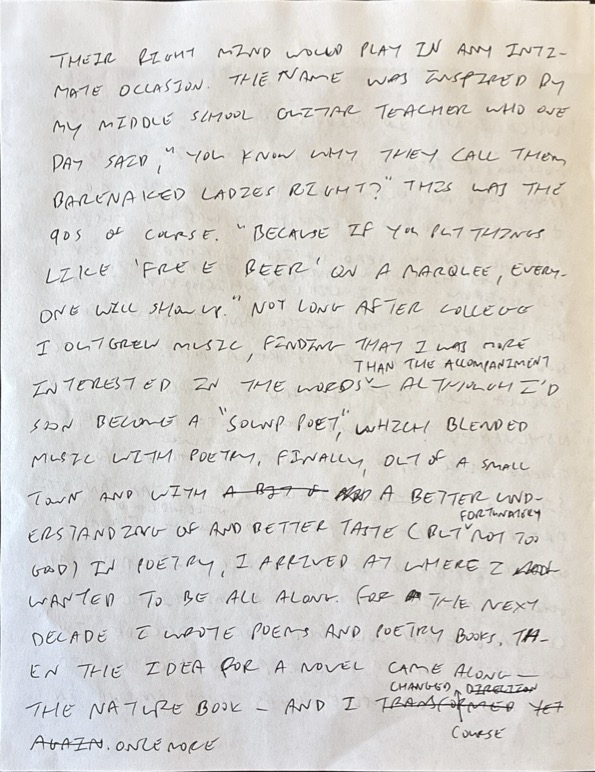 THEIR RIGHT MIND WOULD PLAY IN ANY INTI-
MATE OCCASION. THE NAME WAS INSPIRED BY
MY MIDDLE SCHOOL GUITAR TEACHER WHO ONE
DAY SAID, "YOU KNOW WHY THEY CALL THEM
BARENAKED LADIES RIGHT?" THIS WAS THE
90S OF COURSE. "BECAUSE IF YOU PUT THINGS
LIKE 'FREE BEER' ON A MARQUEE, EVERY-
ONE WILL SHOW UP." NOT LONG AFTER COLLEGE
I OUTGREW MUSIC, FINDING THAT I WAS MORE
THAN THE ACCOMPANIMENT
INTERESTED IN THE WORDS – ALTHOUGH I'D
SOON BECOME A "SOUND POET", WHICH BLENDED
MUSIC WITH POETRY. FINALLY, OUT OF A SMALL
TOWN AND WITH A BIT OF A BETTER UND-
FORTUNATELY
ERSTANDING OF AND BETTER TASTE (BUT NOT TOO
GOOD) IN POETRY, I ARRIVED AT WHERE I
WANTED TO BE ALL ALONG. FOR THE NEXT
DECADE I WROTE POEMS AND POETRY BOOKS. TH-
EN THE IDEA FOR A NOVEL CAME ALONG –
CHANGED DIRECTION
THE NATURE BOOK – AND I TRANSFORMED YET
COURSE
AGAIN. ONCE MORE